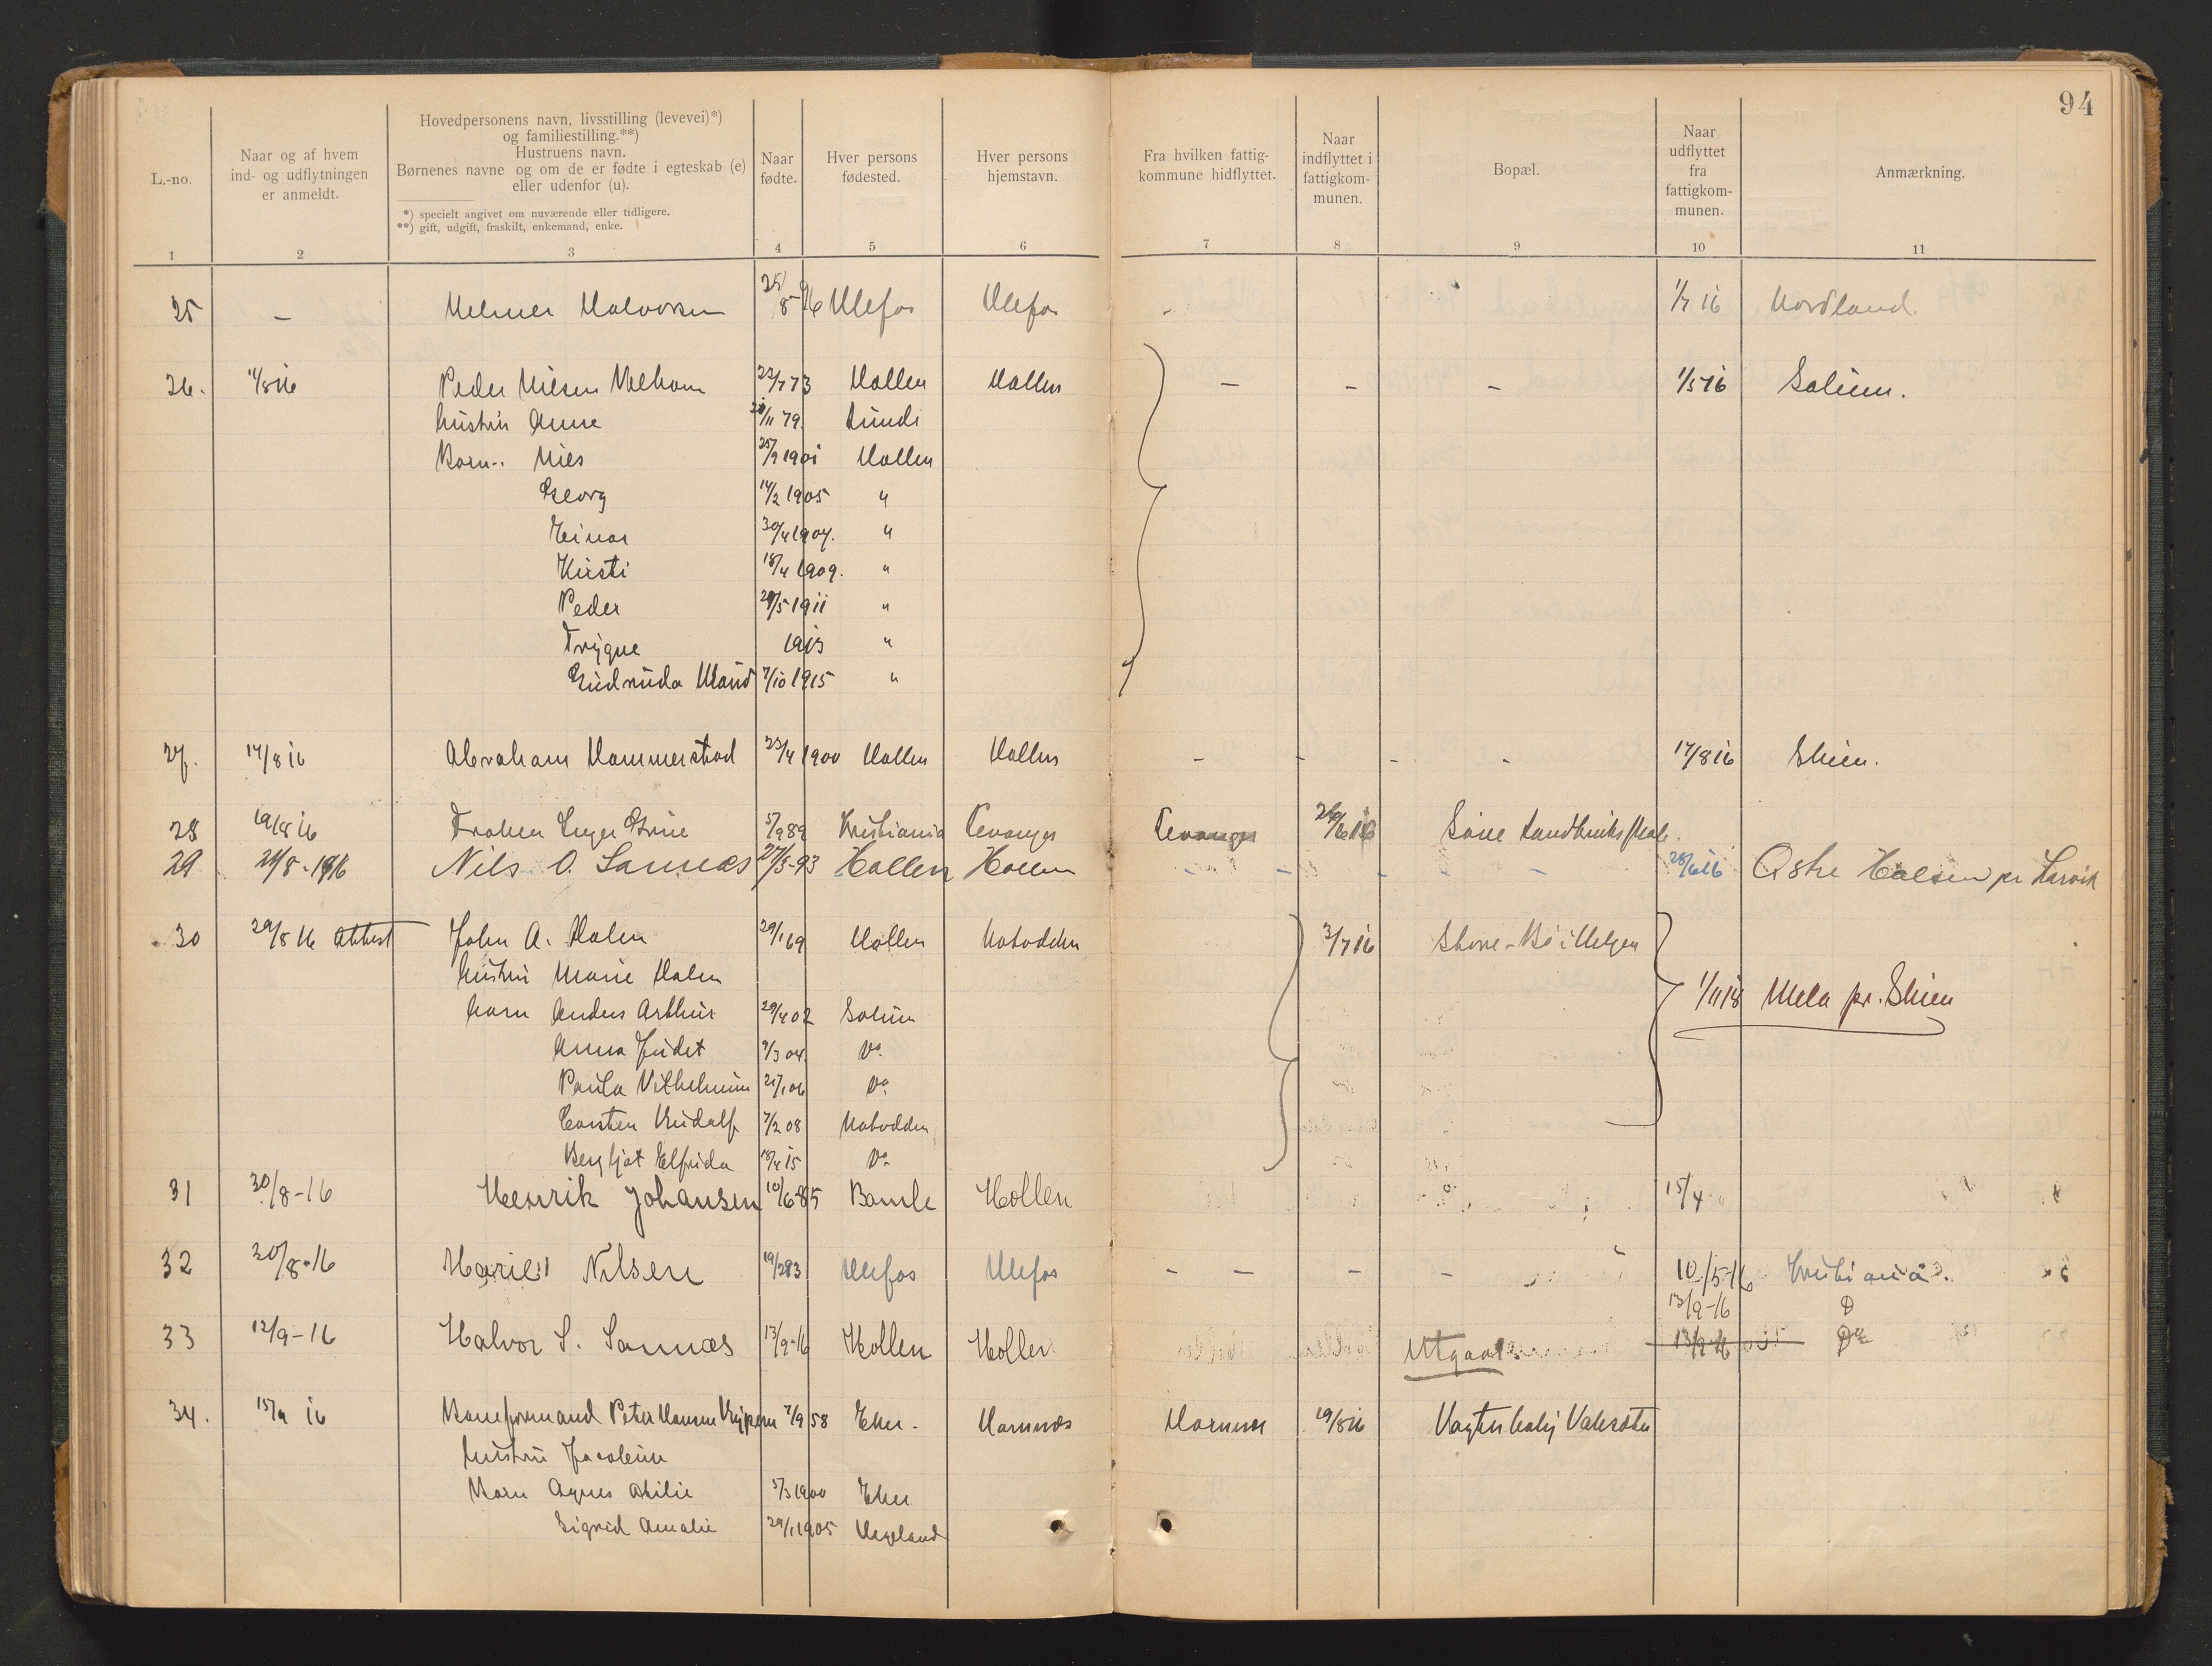 94
L.-no.
Naar og af hvem ind- og udflytningen er anmeldt.
Hovedpersonens navn, livsstilling (levevei)*) og familiestilling.**)
Hustruens navn.
Børnenes navne og om de er fødte i egteskab (e) eller udenfor (u).
*) specielt angivet om nuværende eller tidligere.
**) gift, udgift, fraskilt, enkemand, enke.
Naar fødte.
Hver persons fødested.
Hver persons hjemstavn.
Fra hvilken fattigkommune hidflyttet.
Naar indflyttet i fattigkommunen.
Bopæl.
Naar udflyttet fra fattigkommunen.
Anmærkning.
1 2 3 4 5 6 7 8 9 10 11
25 – Helmer Halvorsen 25/8 96 Ulefos Ulefos - 1/7 16 Nordland.
26. 11/8 16 Peder Nielsen 22/7 73 Hollen Hollen – – – 1/5 16 Solum.
hustru Anne /11 79. Lunde
Børn: Nils 25/9 1901 Hollen
Georg 14/2 1905 "
Einar 30/4 1907. "
Kirsti 18/4 1909. "
Peder /5 1911 "
Trygve 1913 "
Maud 7/10 1915 "
27. 17/8 16 Abraham Hammerstad 23/4 1900 Hollen Hollen - - - - 17/8 16 Skien.
28 19/8 16 Frøken Inger 5/9 89 Kristiania Levanger Levanger 26/6 16 Søve Landbruksskole.
29 24/8 - 1916 Nils O. Sannæs 27/5-93 Hollen Hollen - - - - 28/6 16 Østre Halsen pr Larvik
30 29/8 16 Attest John A. Holen 29/1 69 Hollen Notodden 3/7 16 Skove - Bø i Helgen
hustru Marie Holen
barn Anders Arthur 29/4 02 Solum 1/11 18 Mela pr. Skien
Anna Judit 9/3 04. Do
Paula Vilhelmine 21/1 06 Do
Carsten Rudolf 7/2 08 Notodden
Bergljot Elfrida 18/4 15 Do
31 30/8-16 Henrik Johansen 10/6-85 Bamle Hollen 15/4
32 30/8-16 Marie Nilsen 19/2 83 Ulefos Ulefos – – – – 10/5-16 Kristiania.
13/9-16 D
33 12/9-16 Halvor S. Sannæs 13/9-16 Hollen Hollen Utgaar. 13/9-16 Do
34. 15/9 16 Baneformand Peter Hansen 7/9 58 Eker - Hornnæs Hornnes 19/8 16 Vagterbolig
hustru Jacobine
Barn Agnes 5/3 1900 Eker
Sigrid Amalie 29/1 1905 Vegeland